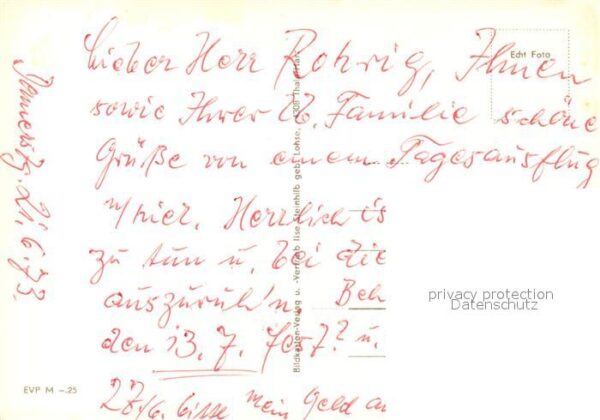 Lieber Herr Rohrig, Ihnen
sowie Ihrer lb. Familie schöne
Grüße von einem Tagesausflug
n/hier. Herrlich is
zu tun u. bei die
auszuruh'n. Beh
den 13. 7. u.
27/6. bitte mein Geld an
21.6.73.
Echt Foto
Bildkarten-Verlag u. -Vertrieb Ilse Steinhilb geb. Lohse,
EVP M -.25
privacy protection
Datenschutz